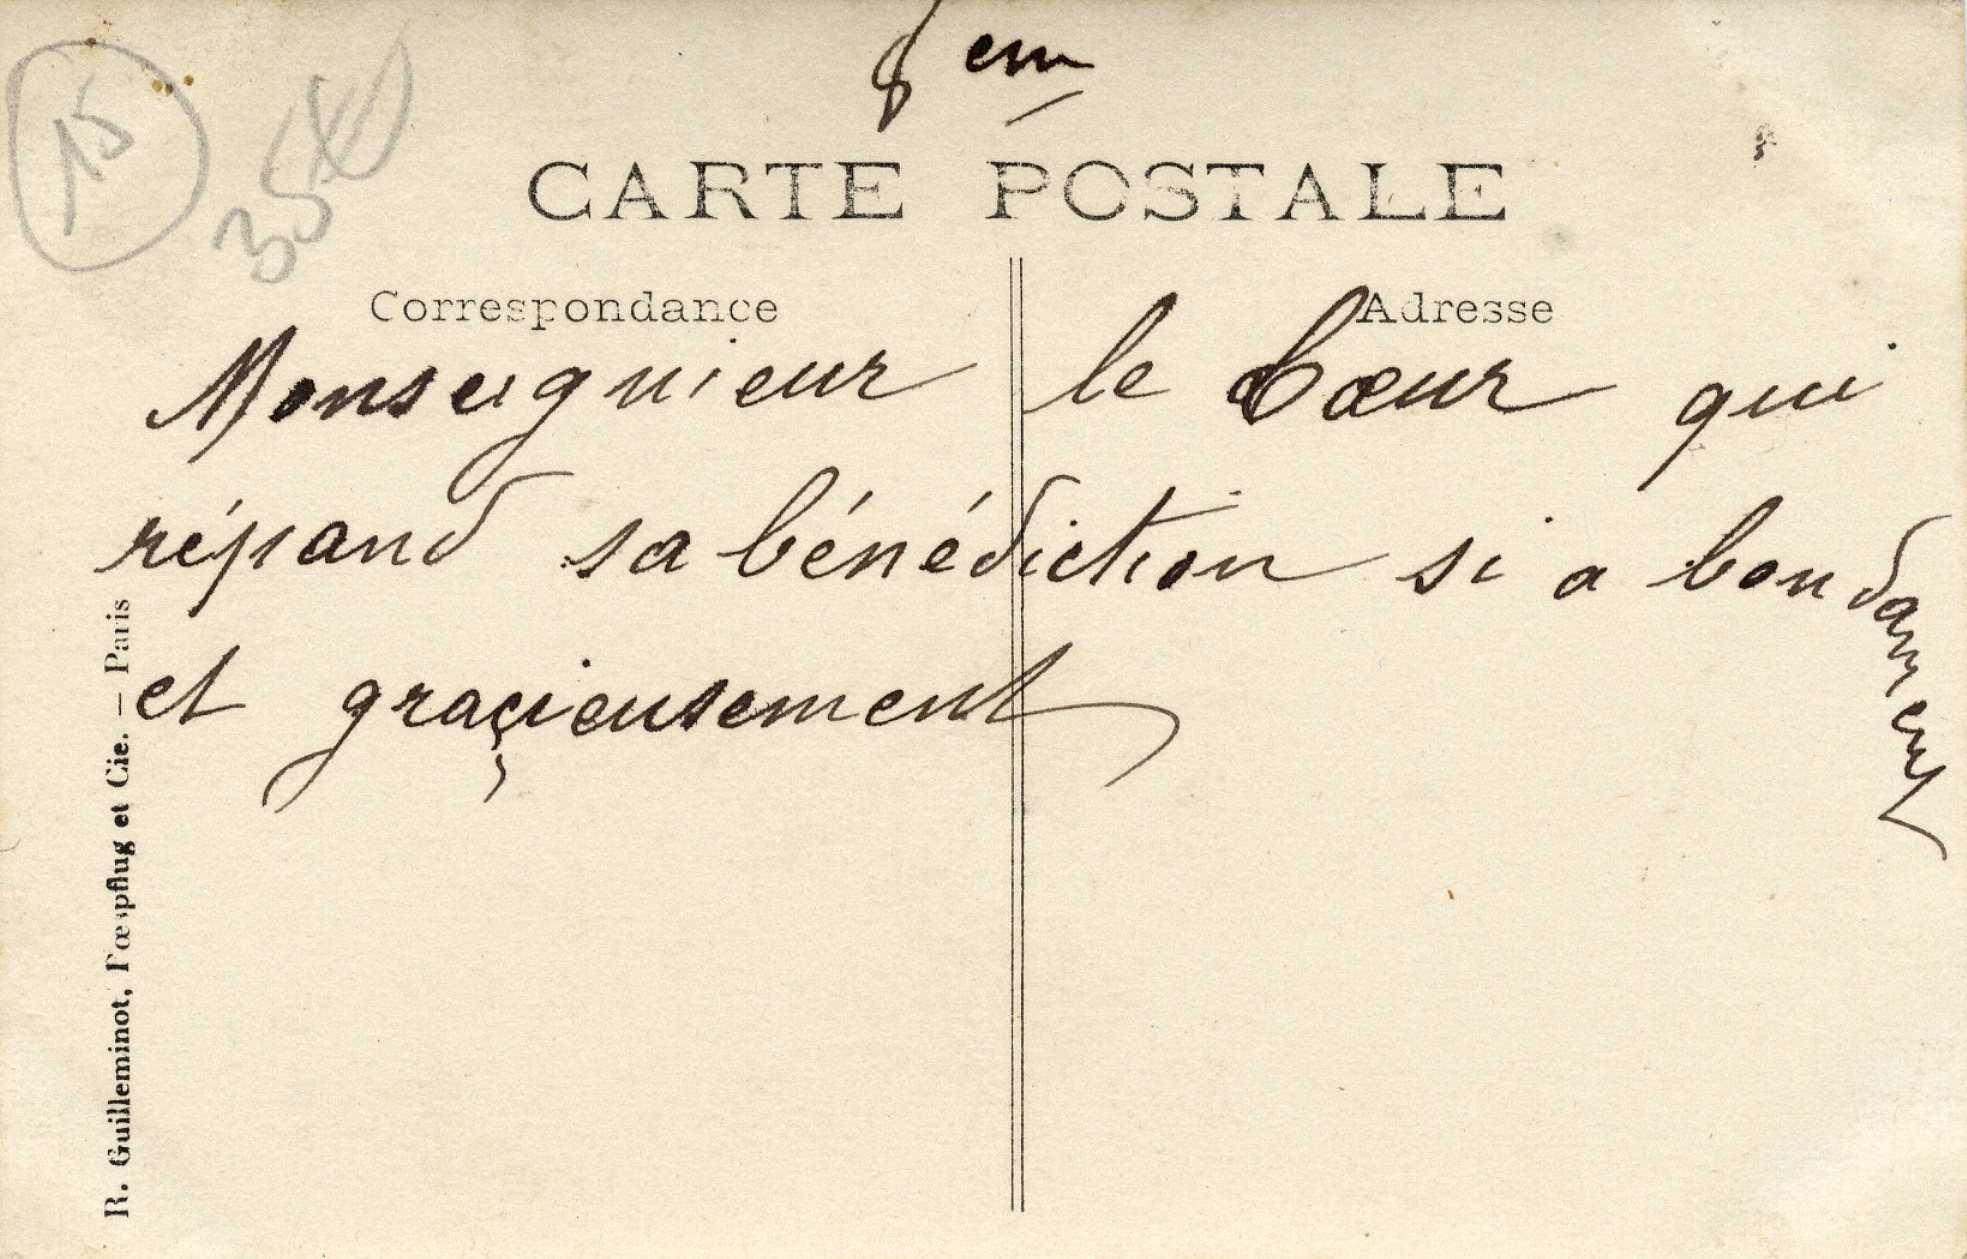 8 em
15
35
CARTE POSTALE
Correspondance
Adresse
Monseignieur le Cœur qui
répand sa bénédiction si a bondament
et graçieusement
R. Guilleminot, Bœspflug et Cie. — Paris